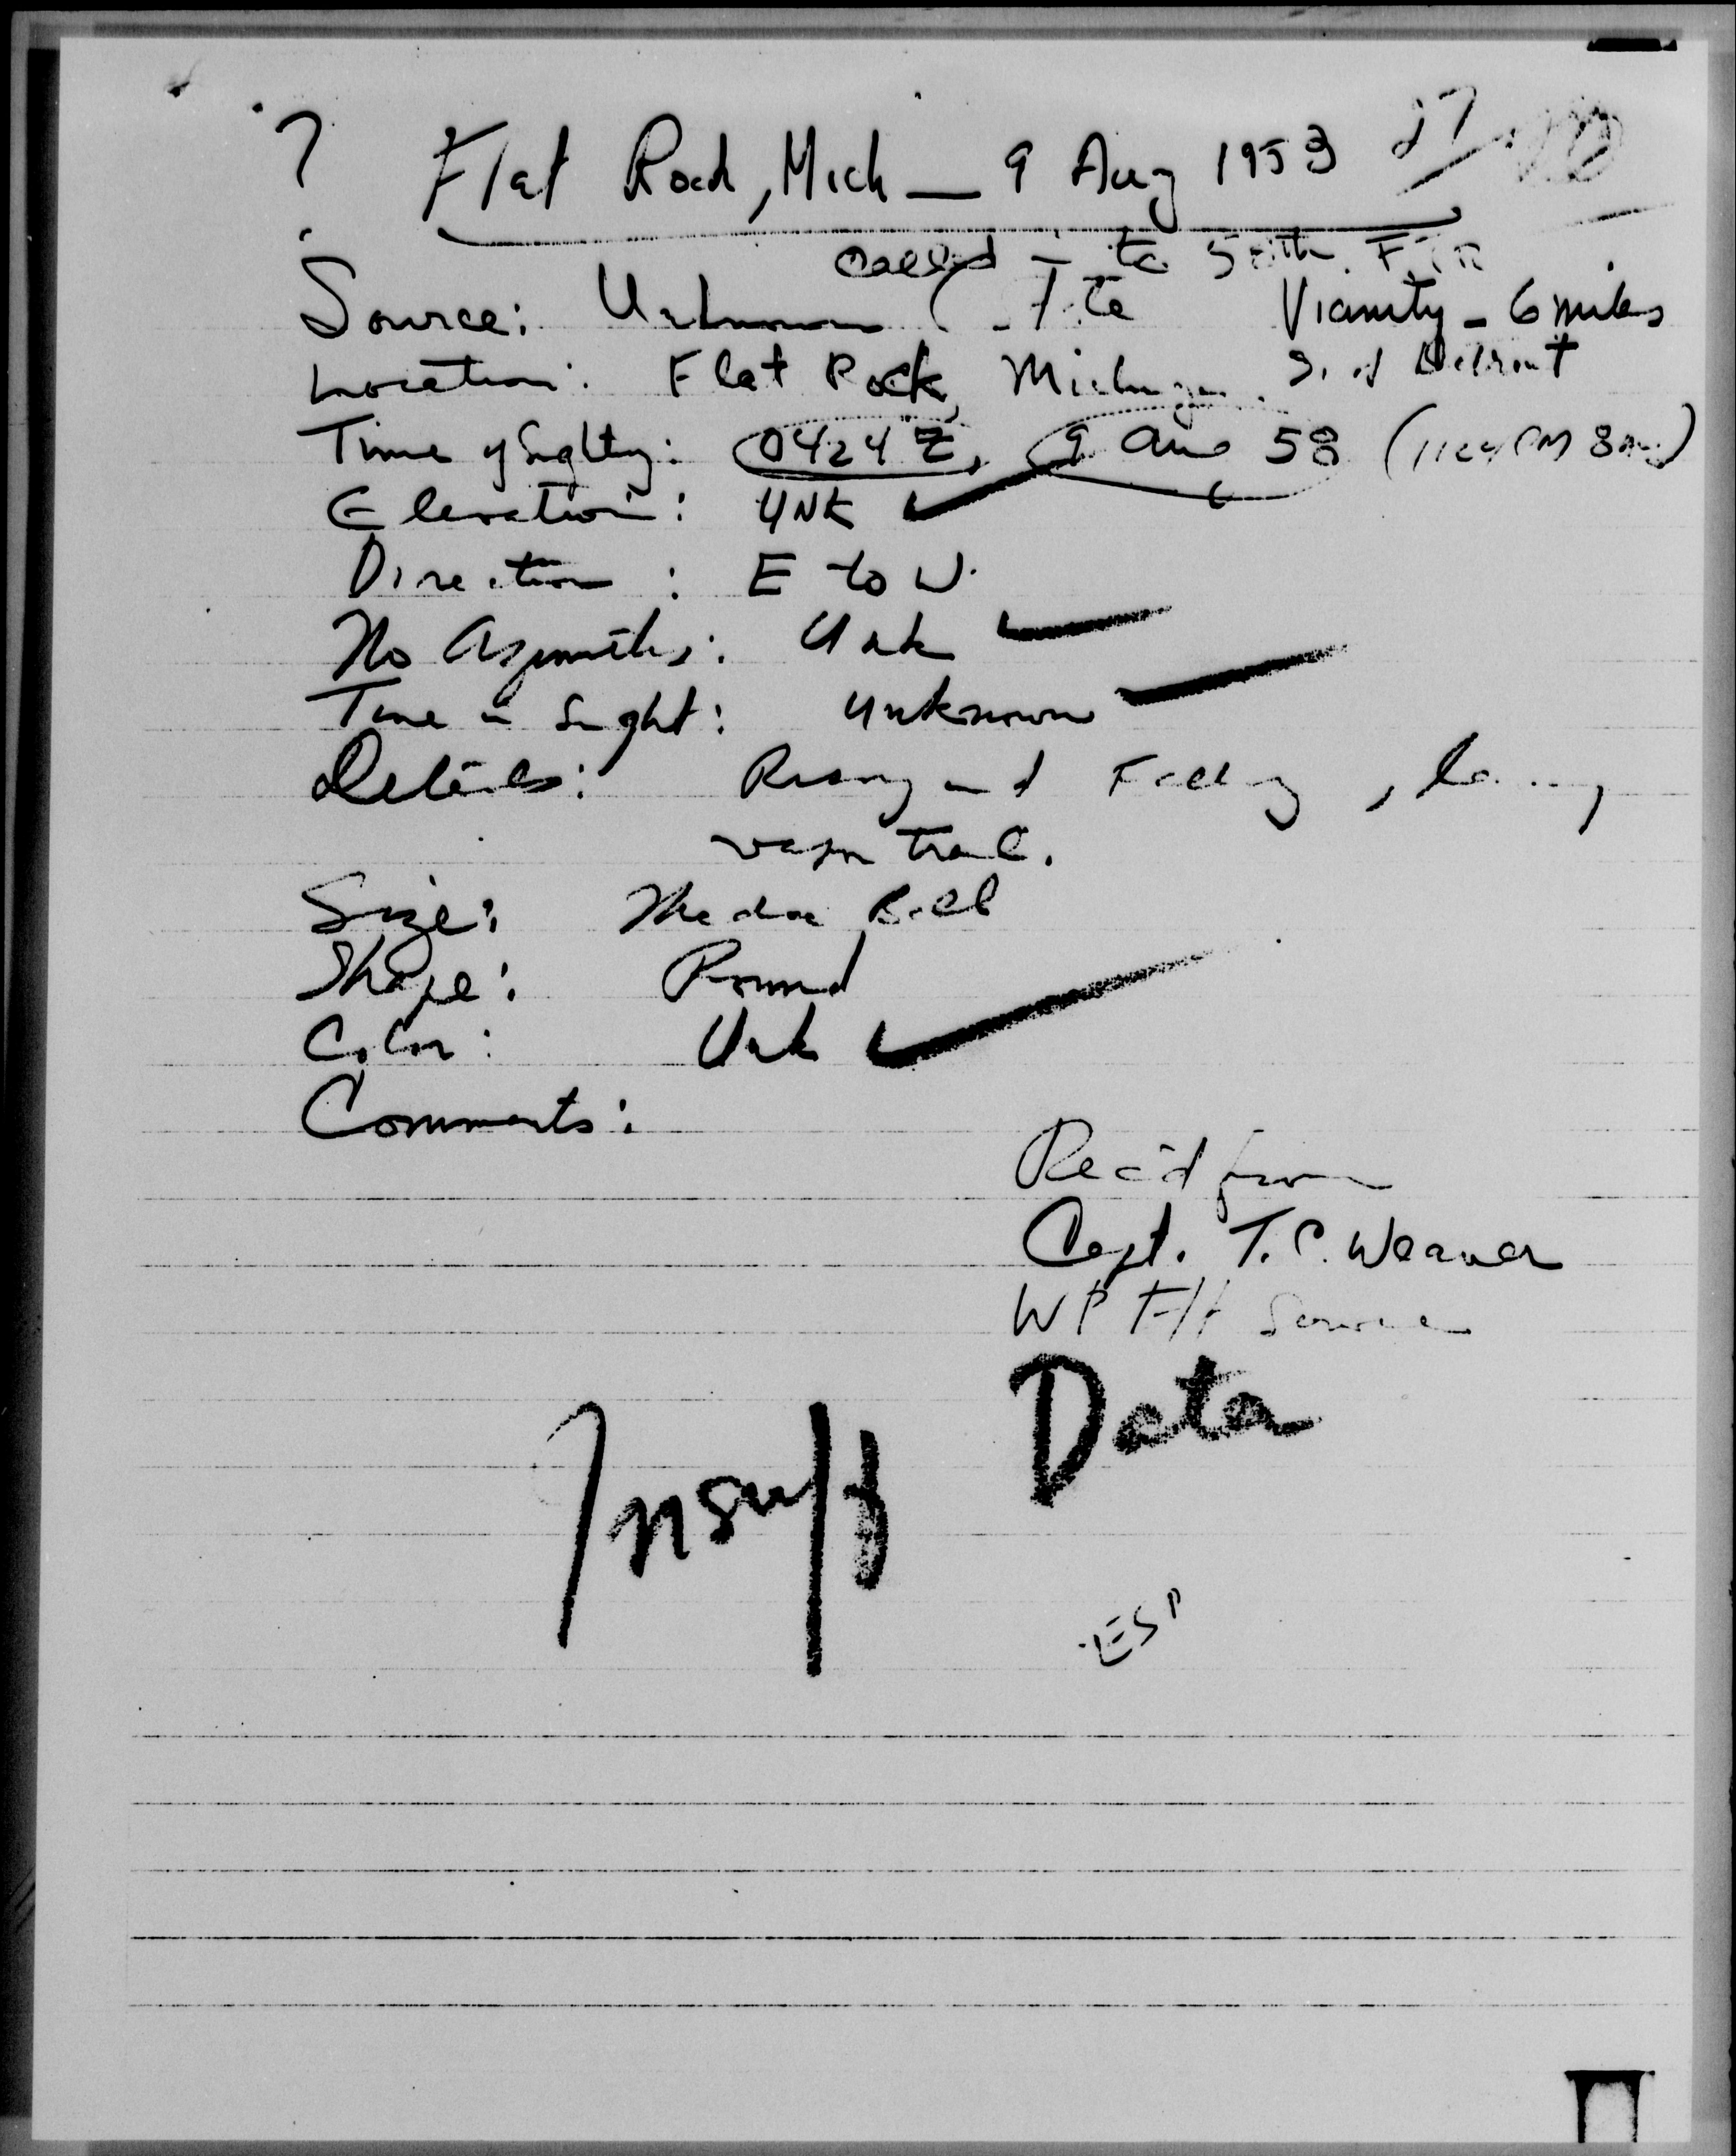 ? Flat Rock, Mich — 9 Aug 1953
called in to
Source: Unknown Vicinity - 6 miles
Location: Flat Rock, Michigan S. of Detroit
Time of Sighting: 0424 Z, 9 Aug 58 (1124 PM 8 Aug)
Elevation: UNK
Direction: E to W.
No Azimuths: Unk
Time in Sight: Unknown
Details: Rising and Falling, leaving
vapor trail.
Size: Medicine Ball
Shape: Round
Color: Unk
Comments:
Rec'd from
Capt. T.C. Weaver
WP Flt Service
Insuff Data
ESP